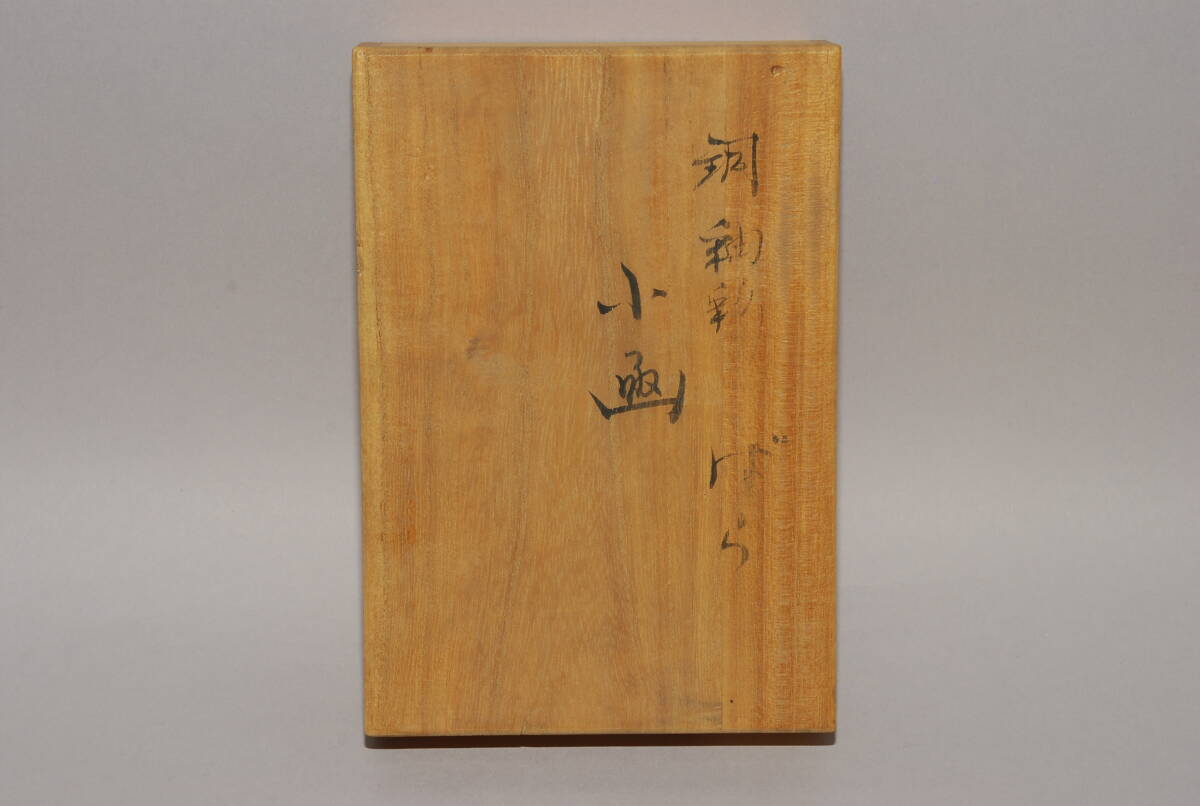 銅釉彩 ばら
小函